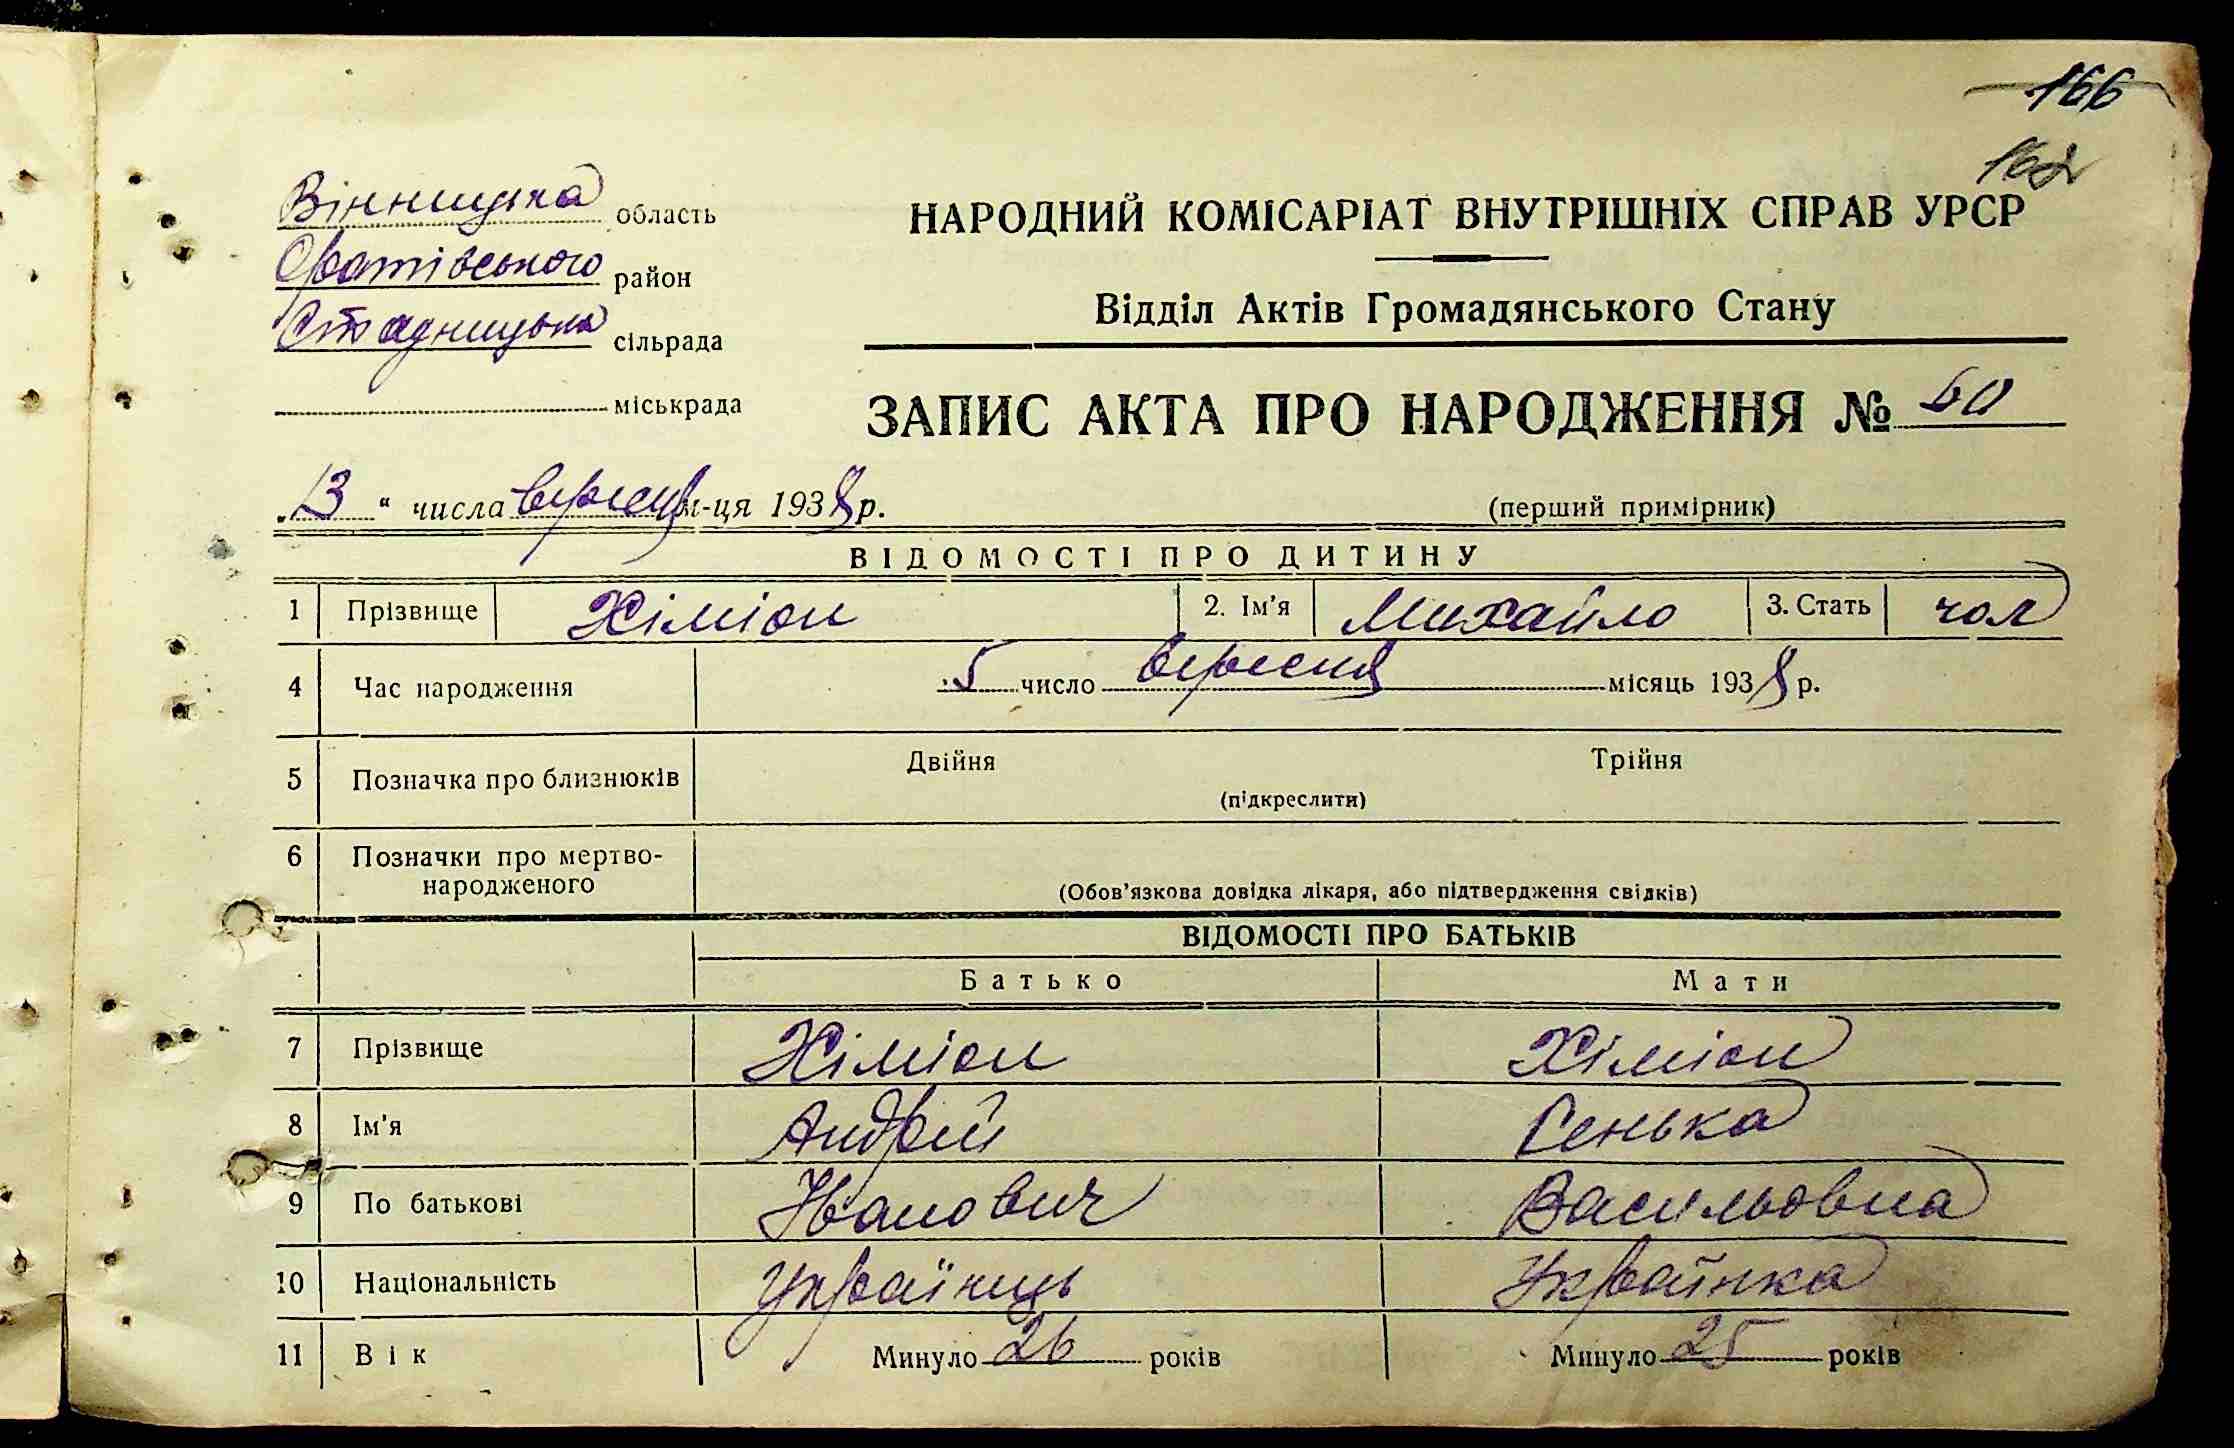 166
162
Вінницька область
Оратівського район
Стадницька сільрада
міськрада
НАРОДНИЙ КОМІСАРІАТ ВНУТРІШНІХ СПРАВ УРСР
Відділ Актів Громадянського Стану
ЗАПИС АКТА ПРО НАРОДЖЕННЯ № 60
„13“ числа вересня м-ця 1938 р.
(перший примірник)
ВІДОМОСТІ ПРО ДИТИНУ
1 Прізвище Хіміон 2. Ім'я Михайло 3. Стать чол
4 Час народження 5 число вересня місяць 1938 р.
5 Позначка про близнюків Двійня Трійня
(підкреслити)
6 Позначки про мертво-
народженого
(Обов'язкова довідка лікаря, або підтвердження свідків)
ВІДОМОСТІ ПРО БАТЬКІВ
Батько Мати
7 Прізвище Хіміон Хіміон
8 Ім'я Андрій Сенька
9 По батькові Іванович Васильовна
10 Національність Українець Українка
11 Вік Минуло 26 років Минуло 25 років